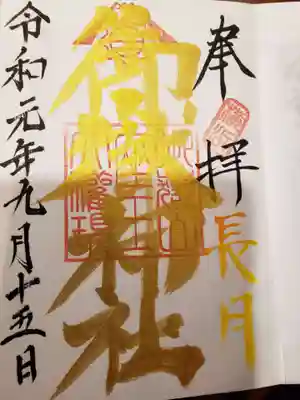 奉拝 長月
御嶽神社
令和元年九月十五日